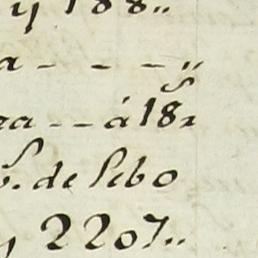 y 188..
a - - - - ..
za -- á 18 rs
v. de sebo
y 2207..